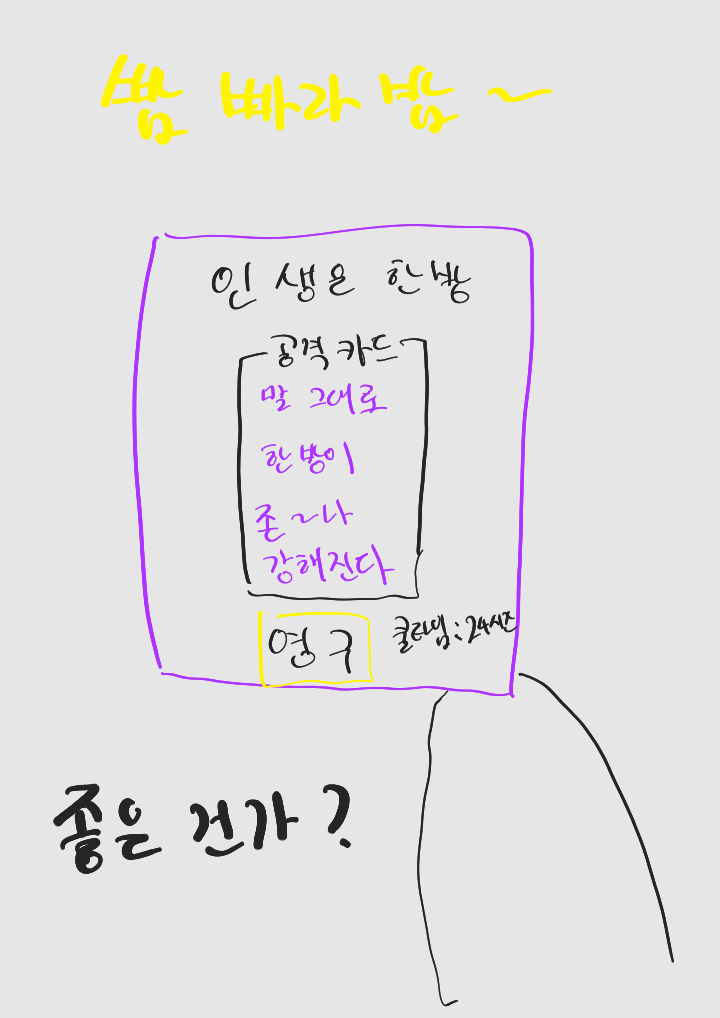 빰 빠라 밤 ~
인생은 한방
공격 카드
말 그대로
한방이
존~나
강해진다
영구
쿨타임 : 24시즌
좋은 건가?